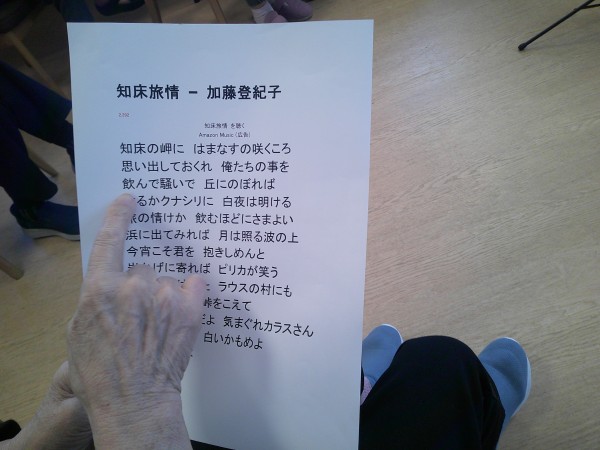 知床旅情 － 加藤登紀子
知床旅情 を聴く
Amazon Music(広告)
知床の岬に はまなすの咲くころ
思い出しておくれ 俺たちの事を
飲んで騒いで 丘にのぼれば
るかクナシリに 白夜は明ける
旅の情けか 飲むほどにさまよい
浜に出てみれば 月は照る波の上
今宵こそ君を 抱きしめんと
げに寄れば ピリカが笑う
ラウスの村にも
峠をこえて
だよ 気まぐれカラスさん
白いかもめよ